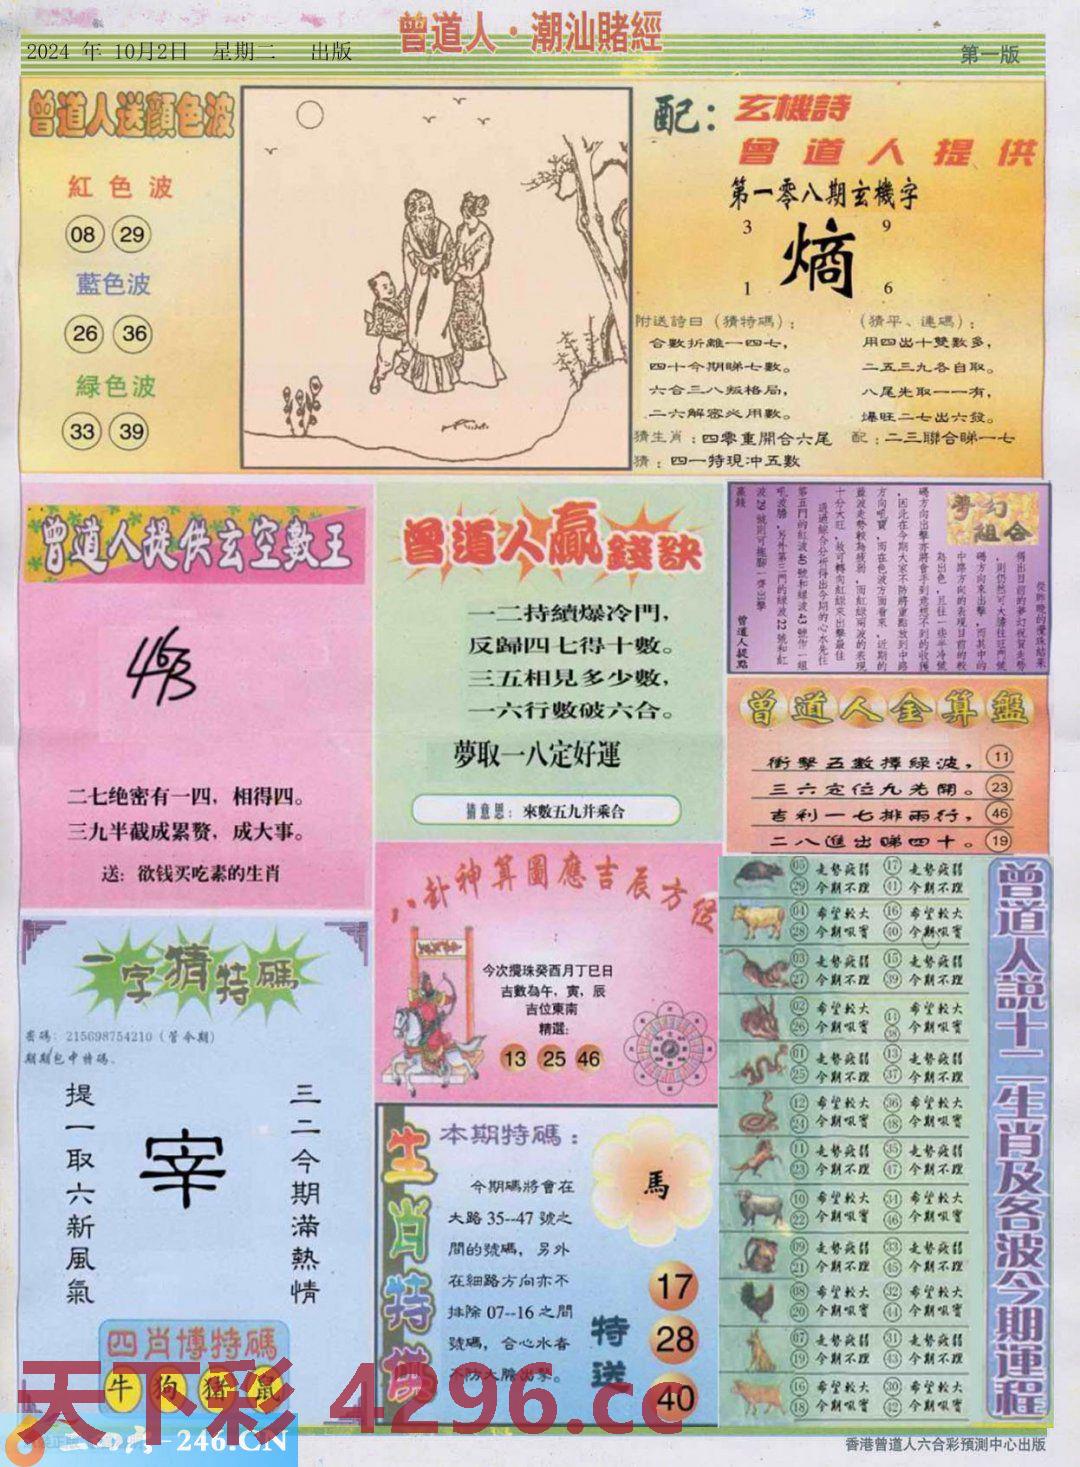 曾道人·潮汕賭經
2024 年 10月2日 星期二 出版
第一版
曾道人送顔色波
紅色波
08 29
藍色波
26 36
緑色波
33 39
配：玄機詩
曾道人提供
第一零八期玄機字
3 9
熵
1 6
附送詩曰（猜特碼）：
合數折離一四七，
四十今期睇七數。
六合三八叛格局，
二六解密必用數。
（猜平、連碼）：
用四出十雙數多，
二五三九各自取。
八尾先取一一有，
爆旺二七出六發。
猜生肖：四零重開合六尾 配：二三聯合睇一七
猜：四一特現冲五數
曾道人提供玄空數王
463
二七绝密有一四，相得四。
三九半截成累赘，成大事。
送：欲钱买吃素的生肖
曾道人贏錢訣
一二持續爆冷門，
反歸四七得十數。
三五相見多少數，
一六行數破六合。
夢取一八定好運
猜意思：來數五九并乘合
夢幻組合
曾道人提點
曾道人金算盤
衝擊五數擇緑波， 11
三六定位九先開。 23
吉利一七排兩行， 46
二八進出睇四十。 19
一字猜特碼
密碼：215698754210（管今期）
期期包中特碼.
提一取六新風氣
宰
三二今期滿熱情
四肖博特碼
牛 狗 猪 鼠
八卦神算圖應吉辰方位
今次攪珠癸酉月丁巳日
吉數為午，寅，辰
吉位東南
精選：
13 25 46
生肖特供
本期特碼：
今期碼將會在
大路 35--47 號之
間的號碼，另外
在細路方向亦不
排除 07--16 之間
號碼，合心水者
不防大膽出擊。
馬
特送
17
28
40
曾道人説十二生肖及各波今期運程
05 走勢疲弱 17 走勢疲弱
29 今期不理 41 今期不理
04 希望較大 16 希望較大
28 今期吼實 40 今期吼實
03 走勢疲弱 15 走勢疲弱
27 今期不理 39 今期不理
02 希望較大 14 希望較大
26 今期吼實 38 今期吼實
01 走勢疲弱 13 走勢疲弱
25 今期不理 37 今期不理
12 希望較大 36 希望較大
24 今期吼實 48 今期吼實
11 走勢疲弱 35 走勢疲弱
23 今期不理 47 今期不理
10 希望較大 34 希望較大
22 今期吼實 46 今期吼實
09 走勢疲弱 33 走勢疲弱
21 今期不理 45 今期不理
08 希望較大 32 希望較大
20 今期吼實 44 今期吼實
07 走勢疲弱 31 走勢疲弱
19 今期不理 43 今期不理
希望較大 30 希望較大
18 今期吼實 42 今期吼實
天下彩 4296.cc
-246.CN
香港曾道人六合彩預測中心出版